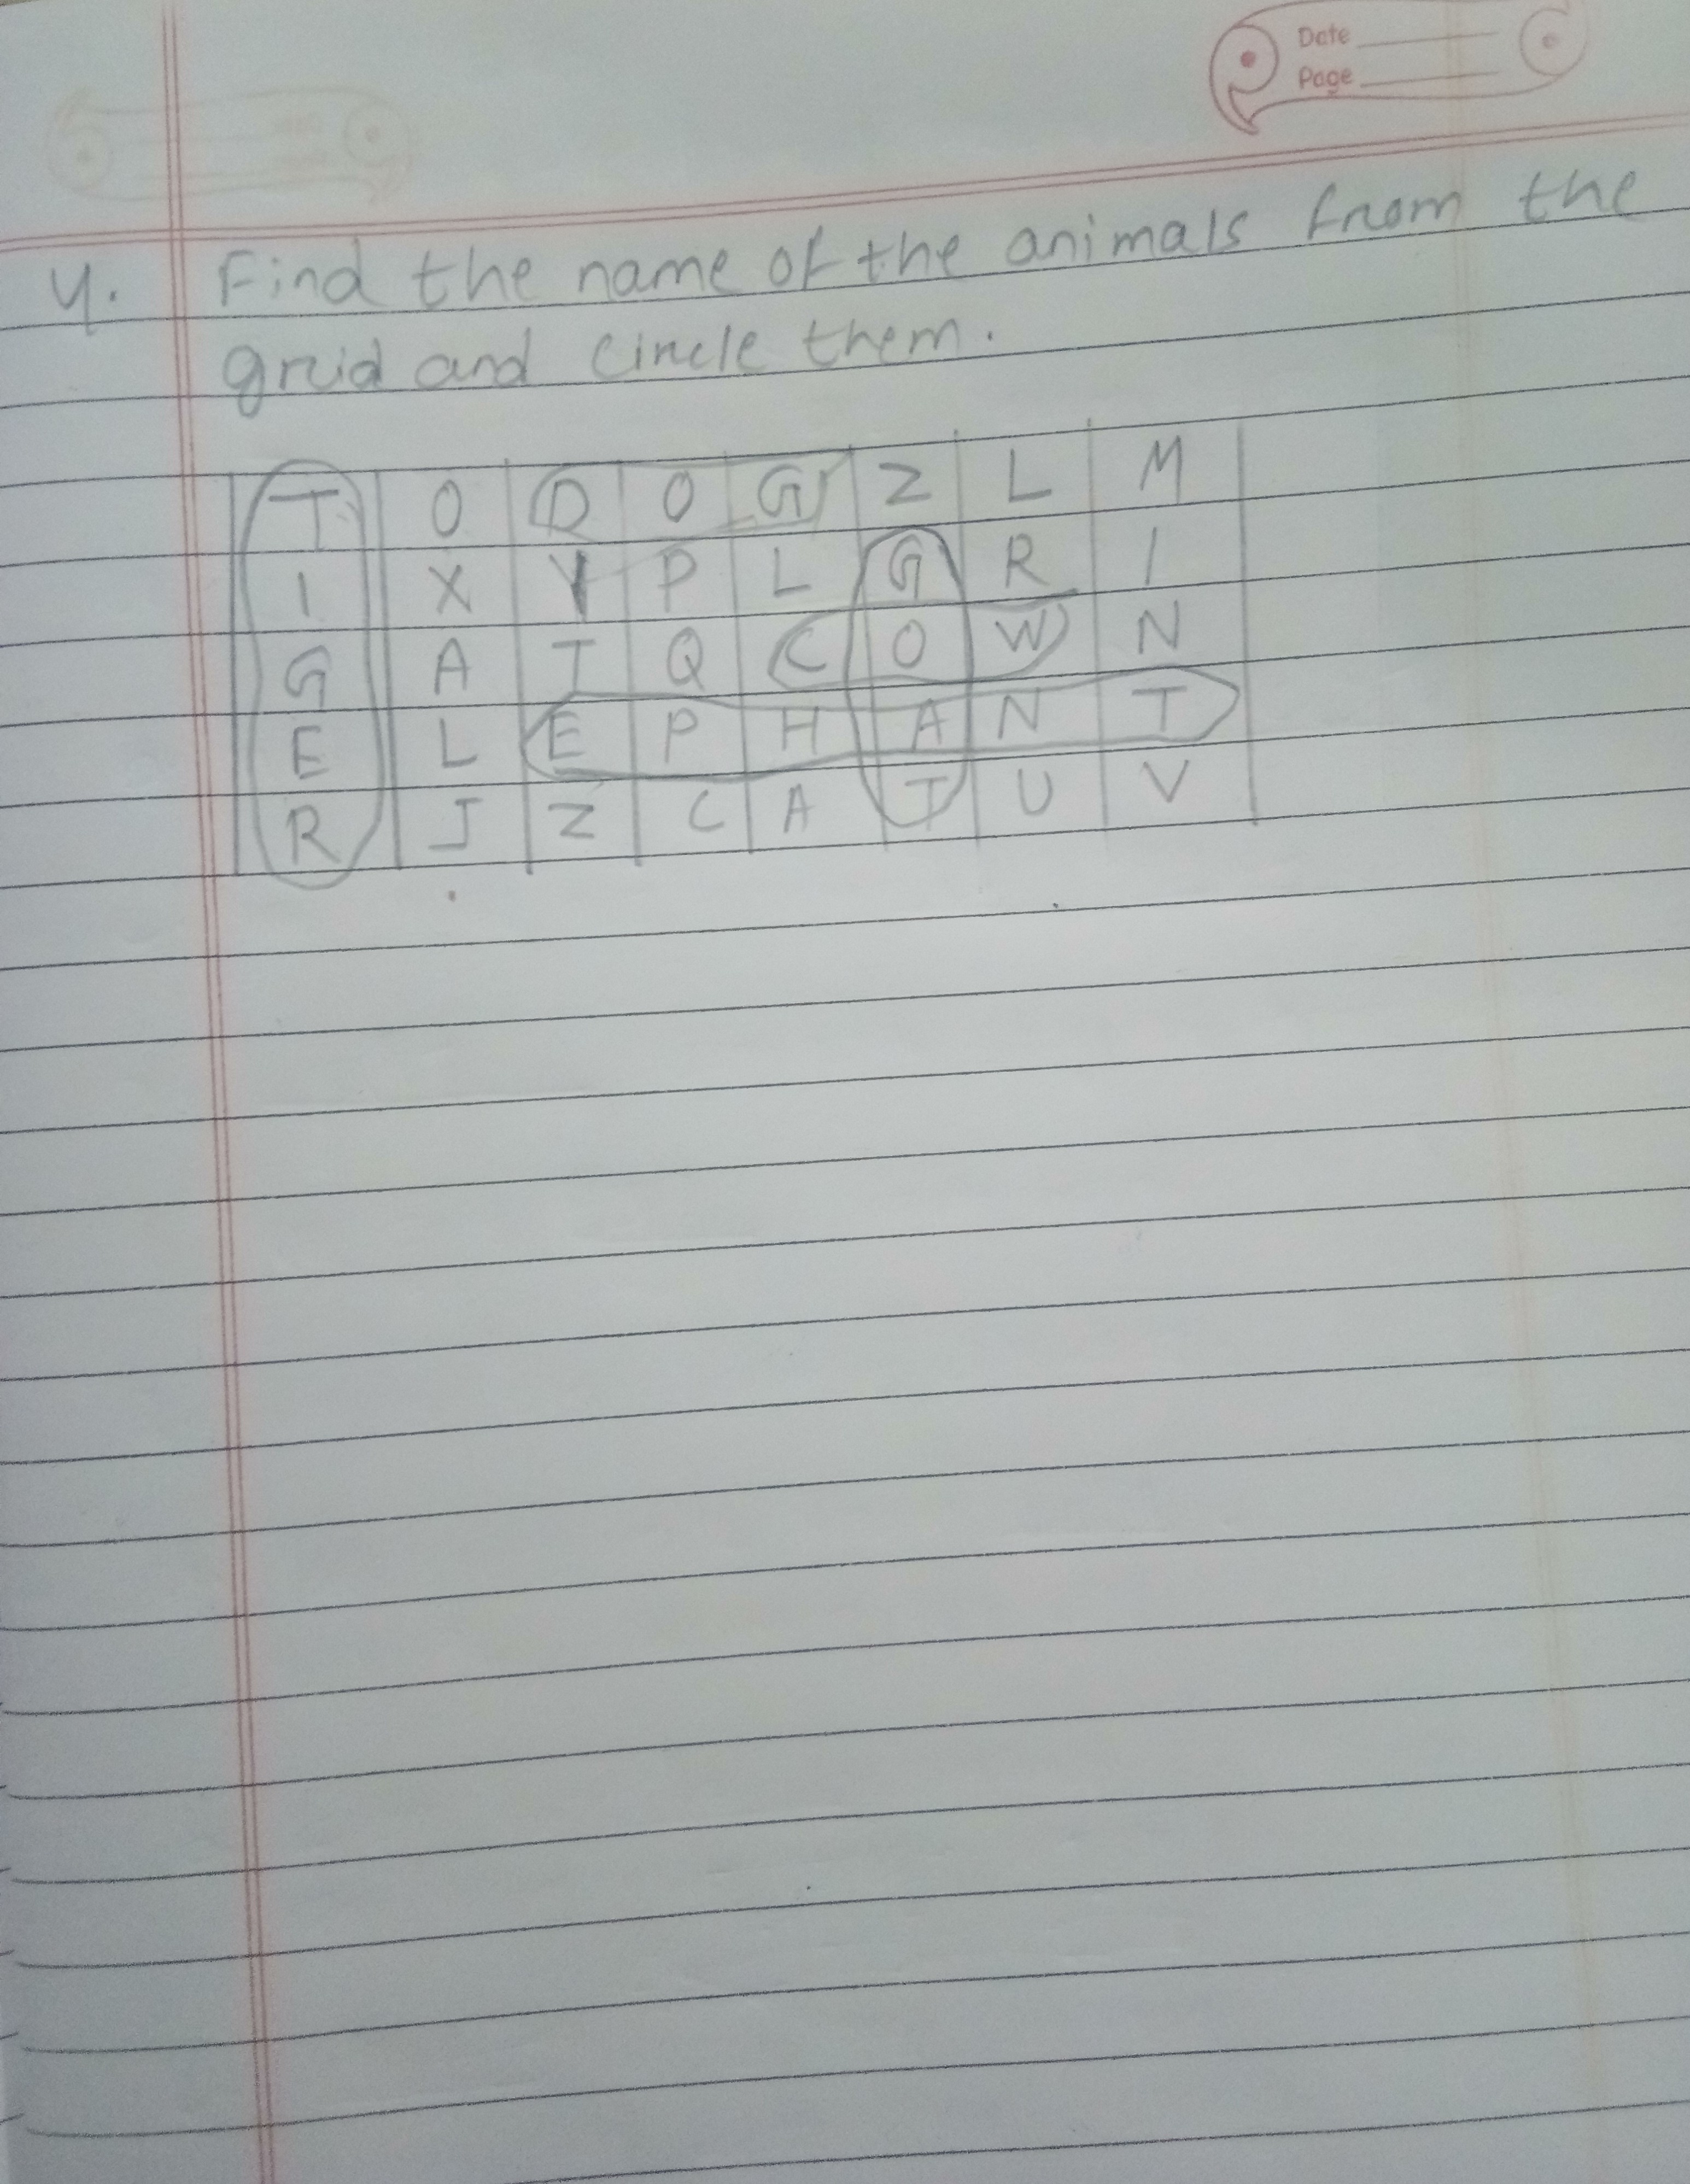 Date
Page
4. Find the name of the animals from the
grid and circle them.
T O D O G Z L M
I X Y P L G R I
G A T Q C O W N
E L E P H A N T
R J Z C A T U V